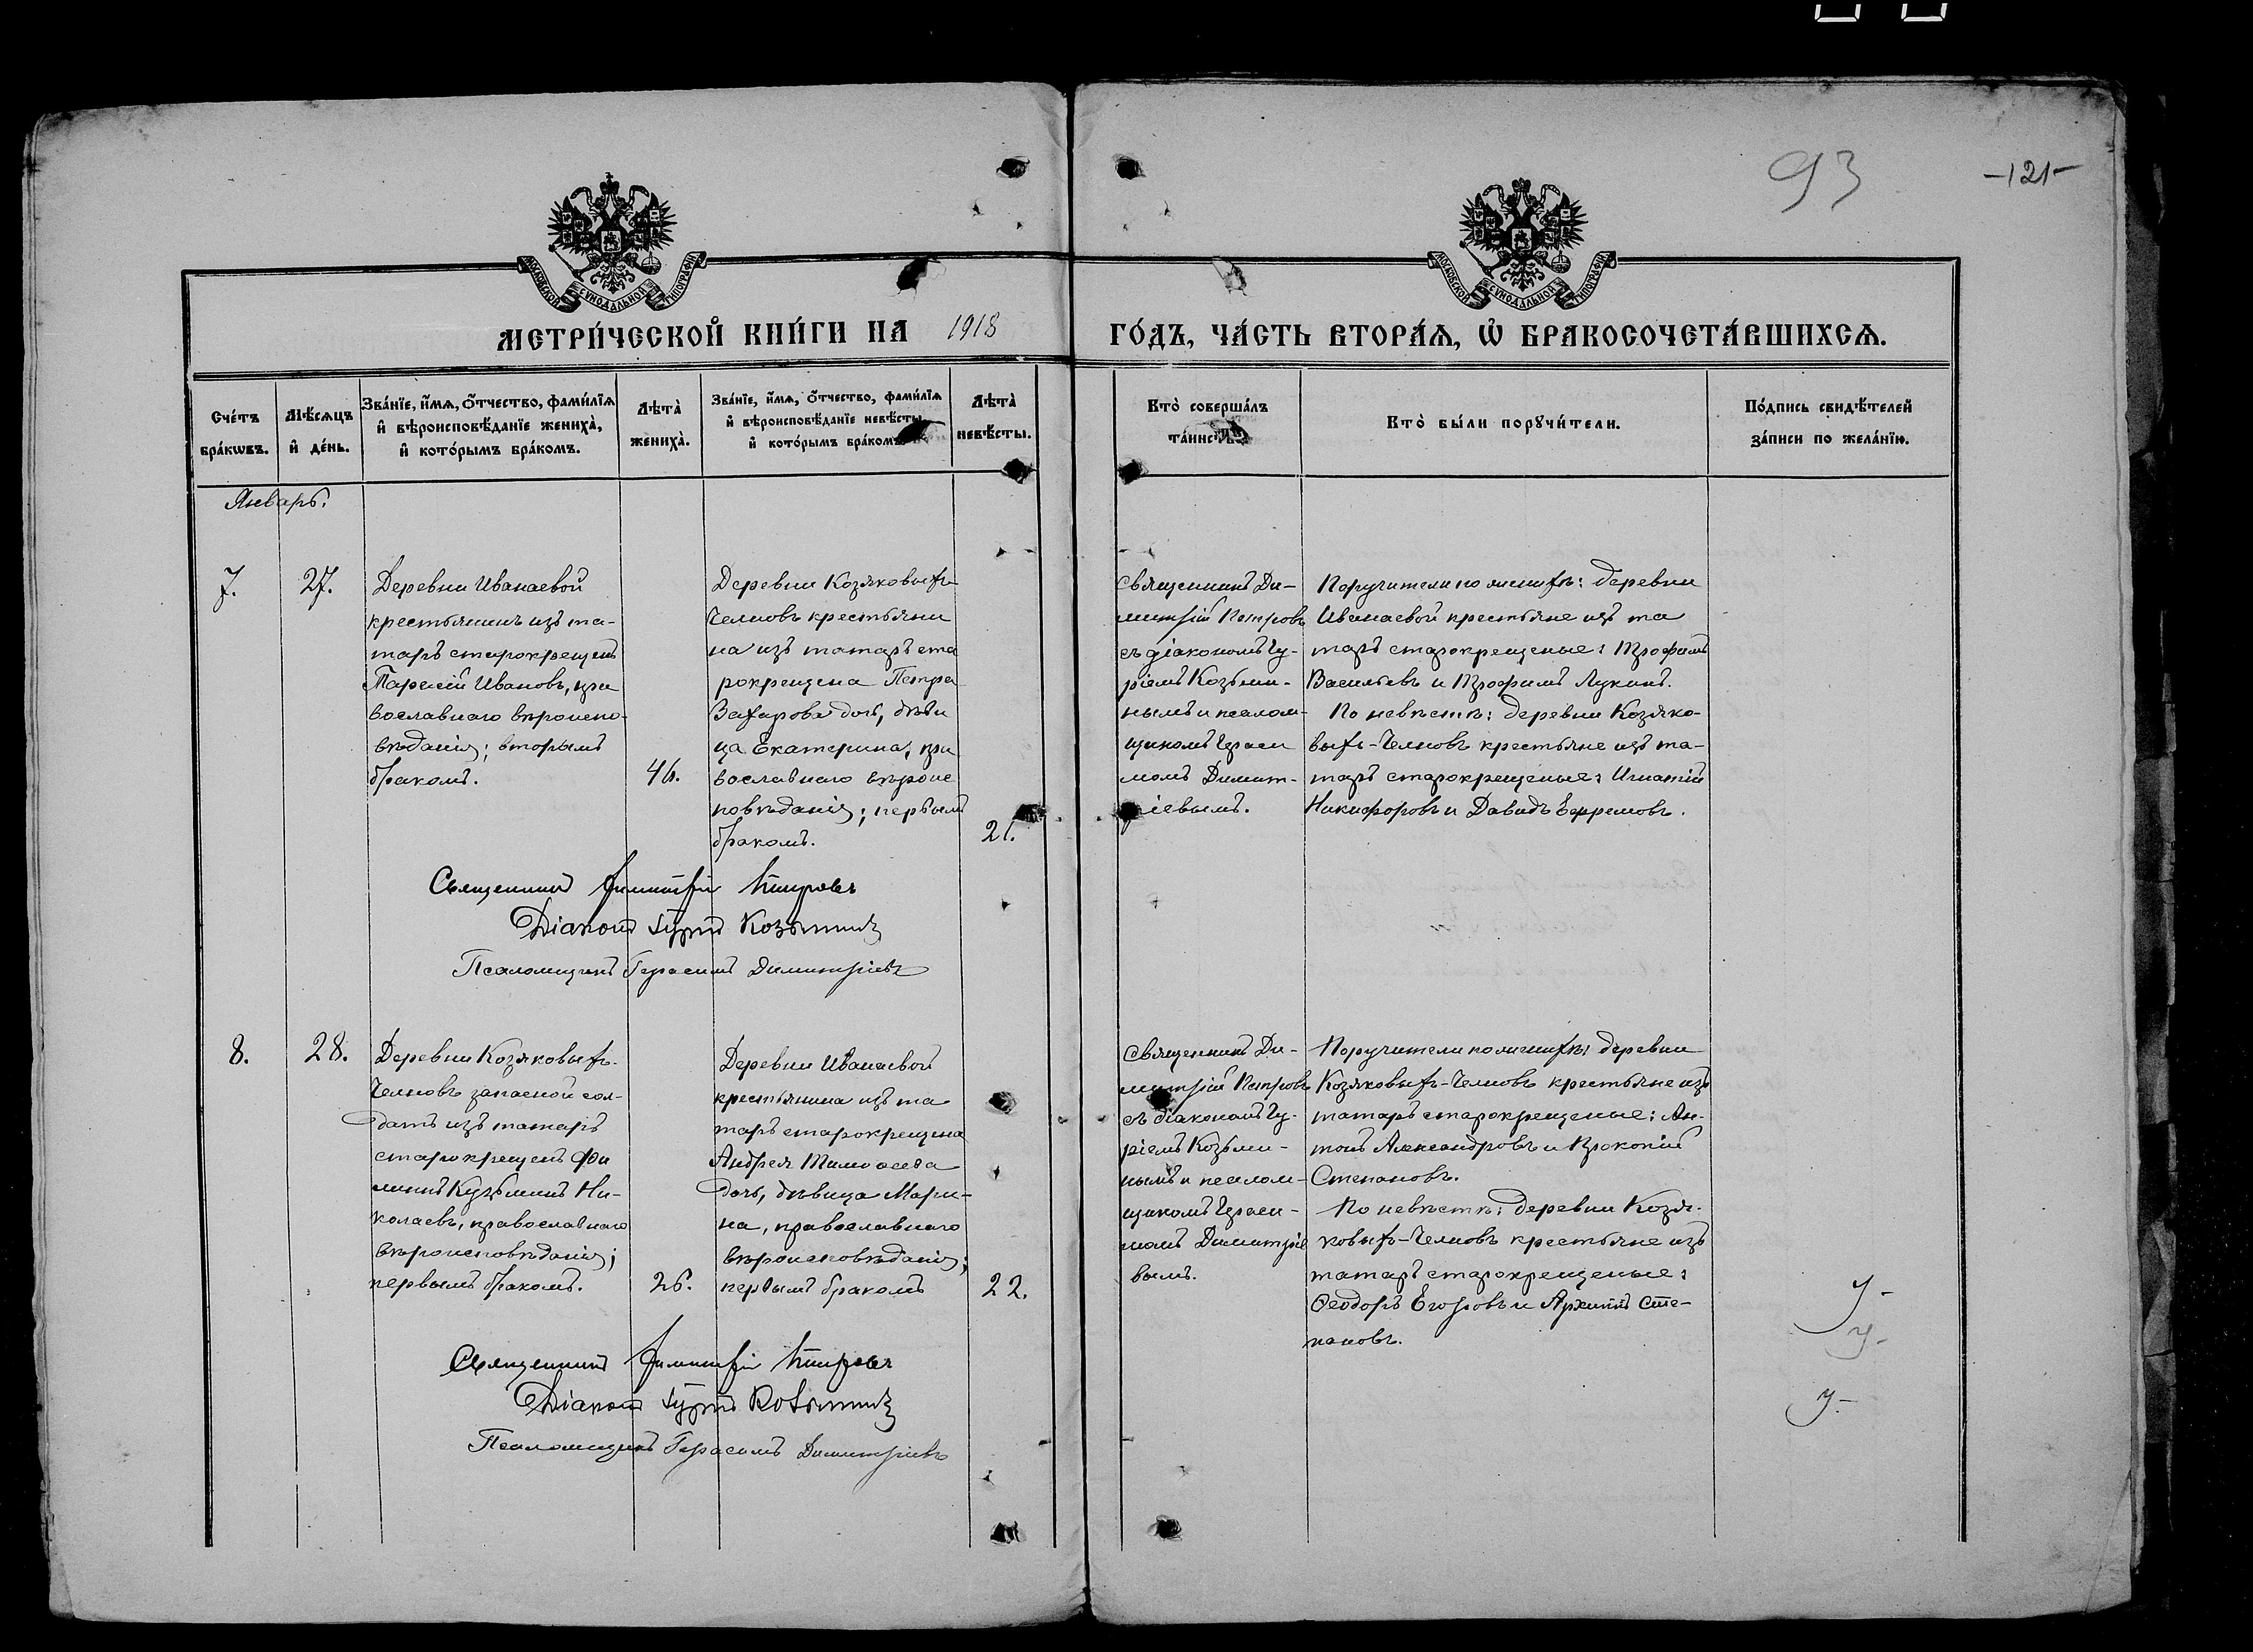 93
-121-
МОСКОВСКОЙ СѴНОДАЛЬНОЙ ТИПОГРАФІИ
МОСКОВСКОЙ СѴНОДАЛЬНОЙ ТИПОГРАФІИ
МЕТРИ́ЧЕСКОЙ КНИ́ГИ НА 1918 ГО́ДЪ, ЧА́СТЬ ВТОРА́Ѧ, Ѽ БРАКОСОЧЕТА́ВШИХСѦ.
Сче́тъ
бра́кѡвъ.
Мѣ́сѧцъ
и҆ де́нь.
Зва́нїе, и҆́мѧ, ѻ҆́тчество, фами́лїѧ
и҆ вѣроисповѣ́данїе жениха̀,
и҆ кото́рымъ бра́комъ.
Лѣта̀
жениха̀.
Зва́нїе, и҆́мѧ, ѻ҆́тчество, фами́лїѧ
и҆ вѣроисповѣ́данїе невѣ́сты,
и҆ кото́рымъ бра́комъ.
Лѣта̀
невѣ́сты.
Кто̀ соверша́лъ
та́инство.
Кто̀ бы́ли порꙋчи́тели.
По́дпись свидѣ́телей
за́писи по жела́нїю.
Январь.
7.
27.
Деревни Иванаевой
крестьянинъ изъ та-
таръ старокрещенъ
Тарасій Ивановъ, пра
вославнаго вѣроиспо-
вѣданія; вторымъ
бракомъ.
46.
Деревни Козяковыхъ-
Челновъ крестьяни
на изъ татаръ ста
рокрещена Петра
Захарова дочь, дѣви
ца Екатерина, пра
вославнаго вѣроис
повѣданія; первымъ
бракомъ.
21.
Священникъ Ди-
митрій Петровъ
съ діакономъ Гу-
ріемъ Козьми-
нымъ и псалом-
щикомъ Гераси
момъ Димит-
ріевымъ.
Поручители по женихѣ: деревни
Иванаевой крестьяне изъ та
таръ старокрещеные: Трофимъ
Васильевъ и Трофимъ Лукинъ.
По невѣстѣ: деревни Козяко-
выхъ-Челновъ крестьяне изъ та-
таръ старокрещеные: Игнатій
Никифоровъ и Давидъ Ефремовъ.
Священникъ Димитрій Петровъ
Діаконъ Гурій Козьминъ
Псаломщикъ Герасимъ Димитріевъ
8.
28.
Деревни Козяковыхъ-
Челновъ запасной сол-
датъ изъ татаръ
старокрещенъ Фи
липпъ Кузьминъ Ни-
колаевъ, православнаго
вѣроисповѣданія;
первымъ бракомъ.
26.
Деревни Иванаевой
крестьянина изъ та
таръ старокрещена
Андрея Тимофеева
дочь, дѣвица Мари-
на, православнаго
вѣроисповѣданія;
первымъ бракомъ
22.
Священникъ Ди-
митрій Петровъ
съ діакономъ Гу-
ріемъ Козьми-
нымъ и псалом-
щикомъ Гераси-
момъ Димитріе
вымъ.
Поручители по женихѣ: деревни
Козяковыхъ-Челновъ крестьяне изъ
татаръ старокрещеные: Ан-
тонъ Александровъ и Прокопій
Степановъ.
По невѣстѣ: деревни Козя-
ковыхъ-Челновъ крестьяне изъ
татаръ старокрещеные:
Ѳеодоръ Егоровъ и Архипъ Сте-
пановъ.
У-
У-
У-
Священникъ Димитрій Петровъ
Діаконъ Гурій Козьминъ
Псаломщикъ Герасимъ Димитріевъ